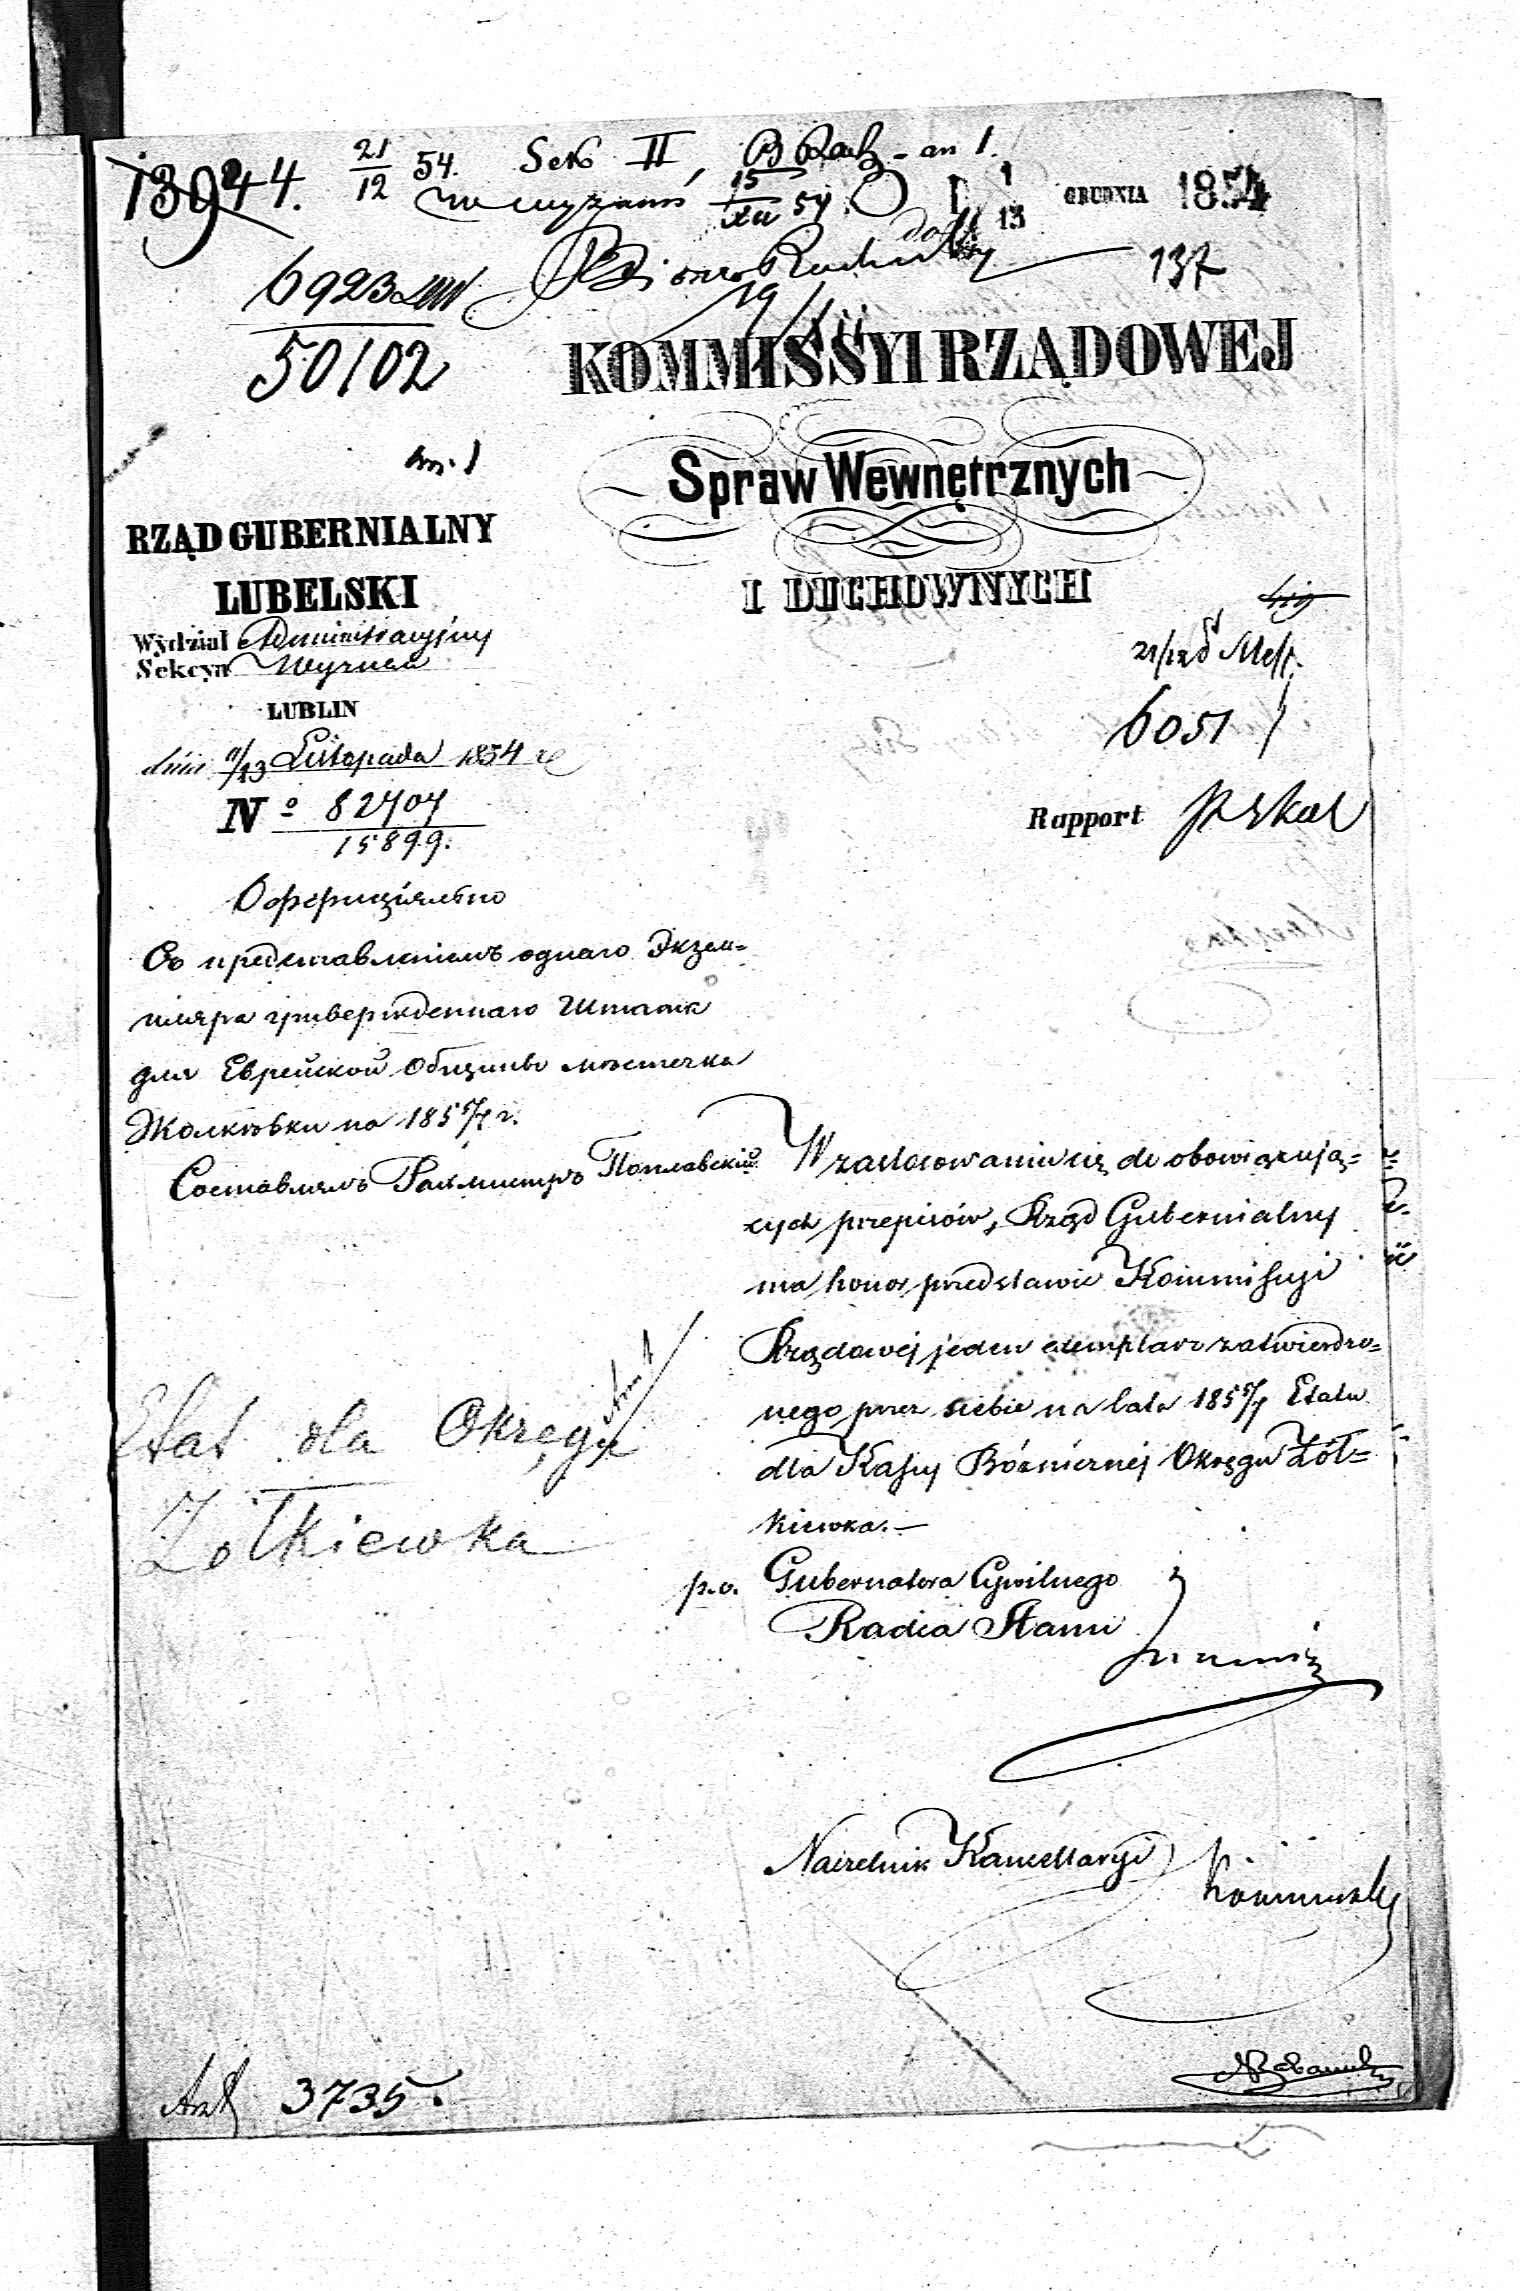 13944.
21/12 54. Sek II
15/XII 54.
1/13 GRUDNIA 1854
6923
50102
137
KOMMISSYI RZĄDOWEJ
Spraw Wewnętrznych
I DUCHOWNYCH
RZĄD GUBERNIALNY
LUBELSKI
Wydział Administracyjny
Sekcya Wyznań
LUBLIN
dnia 11/23 Listopada 1854 r
No 82404
15899.
21/12
6051
Rapport
Съ представленіемъ однаго Экзем-
пляра утвержденнаго Штата
для Еврейской Общины мѣстечка
Жолкѣвки на 1855/7 г.
Составлялъ Поплавскій
W zastosowaniu się do obowiązują-
cych przepisów, Rząd Gubernialny
ma honor przedstawić Kommissyi
Rządowej jeden exemplarz zatwierdzo-
nego przez siebie na lata 1855/7 Etatu
dla Kassy Bóżniczej Okręgu Żół-
kiewka.—
Etat dla Okręgu
Żółkiewka
p.o. Gubernatora Cywilnego
Radca Stanu
Naczelnik Kancellaryi
3735.